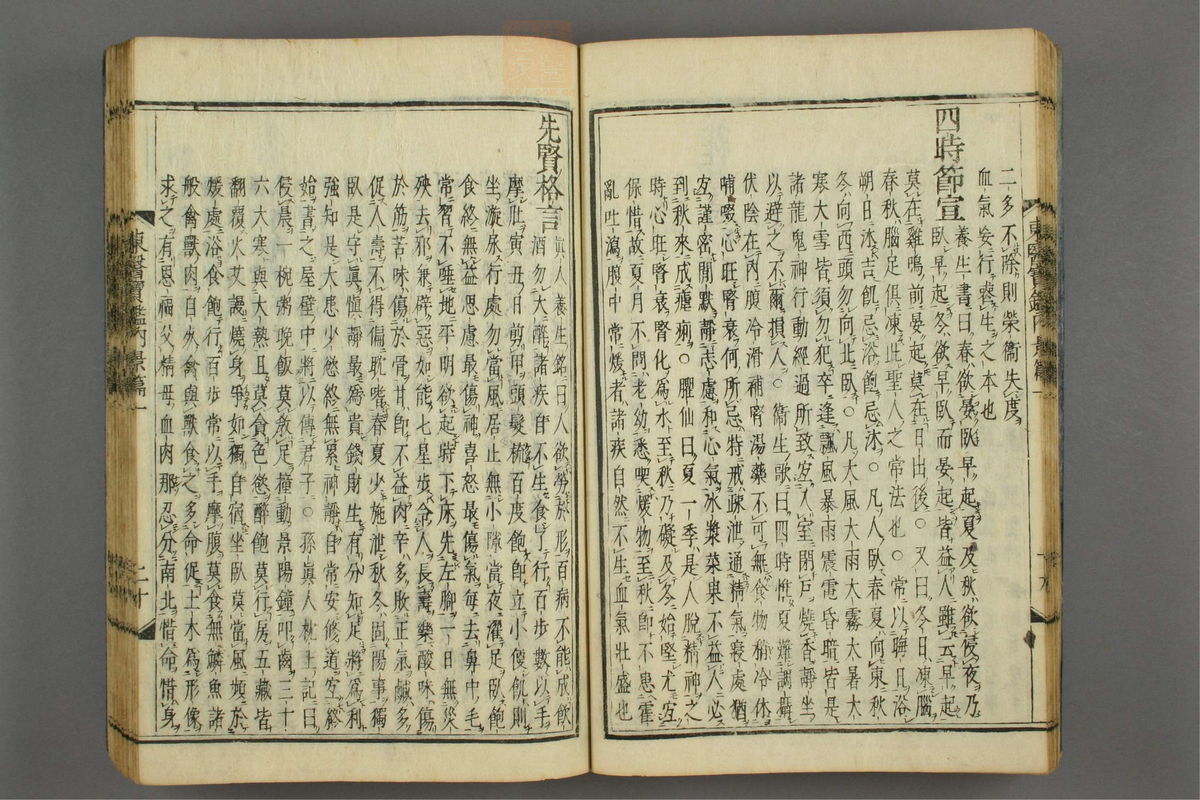 二多不除則榮衛失度
血氣妄行喪生之本也
四時節宣
養生書曰春欲晏臥早起夏及秋欲侵夜乃
臥早起冬欲早臥而晏起皆益人雖云早起
莫在雞鳴前晏起莫在日出後○又曰冬日凍腦
春秋腦足俱凍此聖人之常法也○常以晦日浴
朔日沐吉飢忌浴飽忌沐○凡人臥春夏向東秋
冬向西頭勿向北臥○凡大風大雨大霧大暑大
寒大雪皆須勿犯卒逢飄風暴雨震電昏暗皆是
諸龍鬼神行動經過所致宜入室閉戶燒香靜坐
以避之不爾損人○衛生歌曰四時惟夏難調攝
伏陰在內腹冷滑補腎湯藥不可無食物稍冷休
哺啜心旺腎衰何所忌特戒疎泄通精氣寢處猶
宜謹密間默靜志慮和心氣氷漿菜果不益人必
到秋來成瘧痢○臞仙曰夏一季是人脫精神之
時心旺腎衰腎化爲水至秋乃凝及冬始堅尤宜
保惜故夏月不問老幼悉喫煖物至秋卽不患霍
亂吐瀉腹中常煖者諸疾自然不生血氣壯盛也
東醫寶鑑內景篇一
十九
先賢格言
眞人養生銘曰人欲勞於形百病不能成飮
酒勿大醉諸疾自不生食了行百步數以手
摩肚寅丑日剪甲頭髮梳百度飽卽立小便飢則
坐漩尿行處勿當風居止無小隙當夜濯足臥飽
食終無益思慮最傷神喜怒最傷氣每去鼻中毛
常習不唾地平明欲起時下床先左脚一日無災
殃去邪兼辟惡如能七星步令人長壽樂酸味傷
於筋苦味傷於骨甘卽不益肉辛多敗正氣鹹多
促人壽不得偏耽嗜春夏少施泄秋冬固陽事獨
臥是守眞愼靜最爲貴錢財生有分知足將爲利
強知是大患少慾終無累神靜自常安修道宜終
始書之屋壁中將以傳君子○孫眞人枕上記曰
侵晨一椀粥晚飯莫敎足撞動景陽鐘叩齒三十
六大寒與大熱且莫貪色慾醉飽莫行房五藏皆
翻覆火艾謾燒身爭如獨自宿坐臥莫當風頻於
煖處浴食飽行百步常以手摩腹莫食無鱗魚諸
般禽獸肉自死禽與獸食之多命促土木爲形像
求之有恩福父精母血肉那忍分南北惜命惜身
東醫寶鑑內景篇一
二十